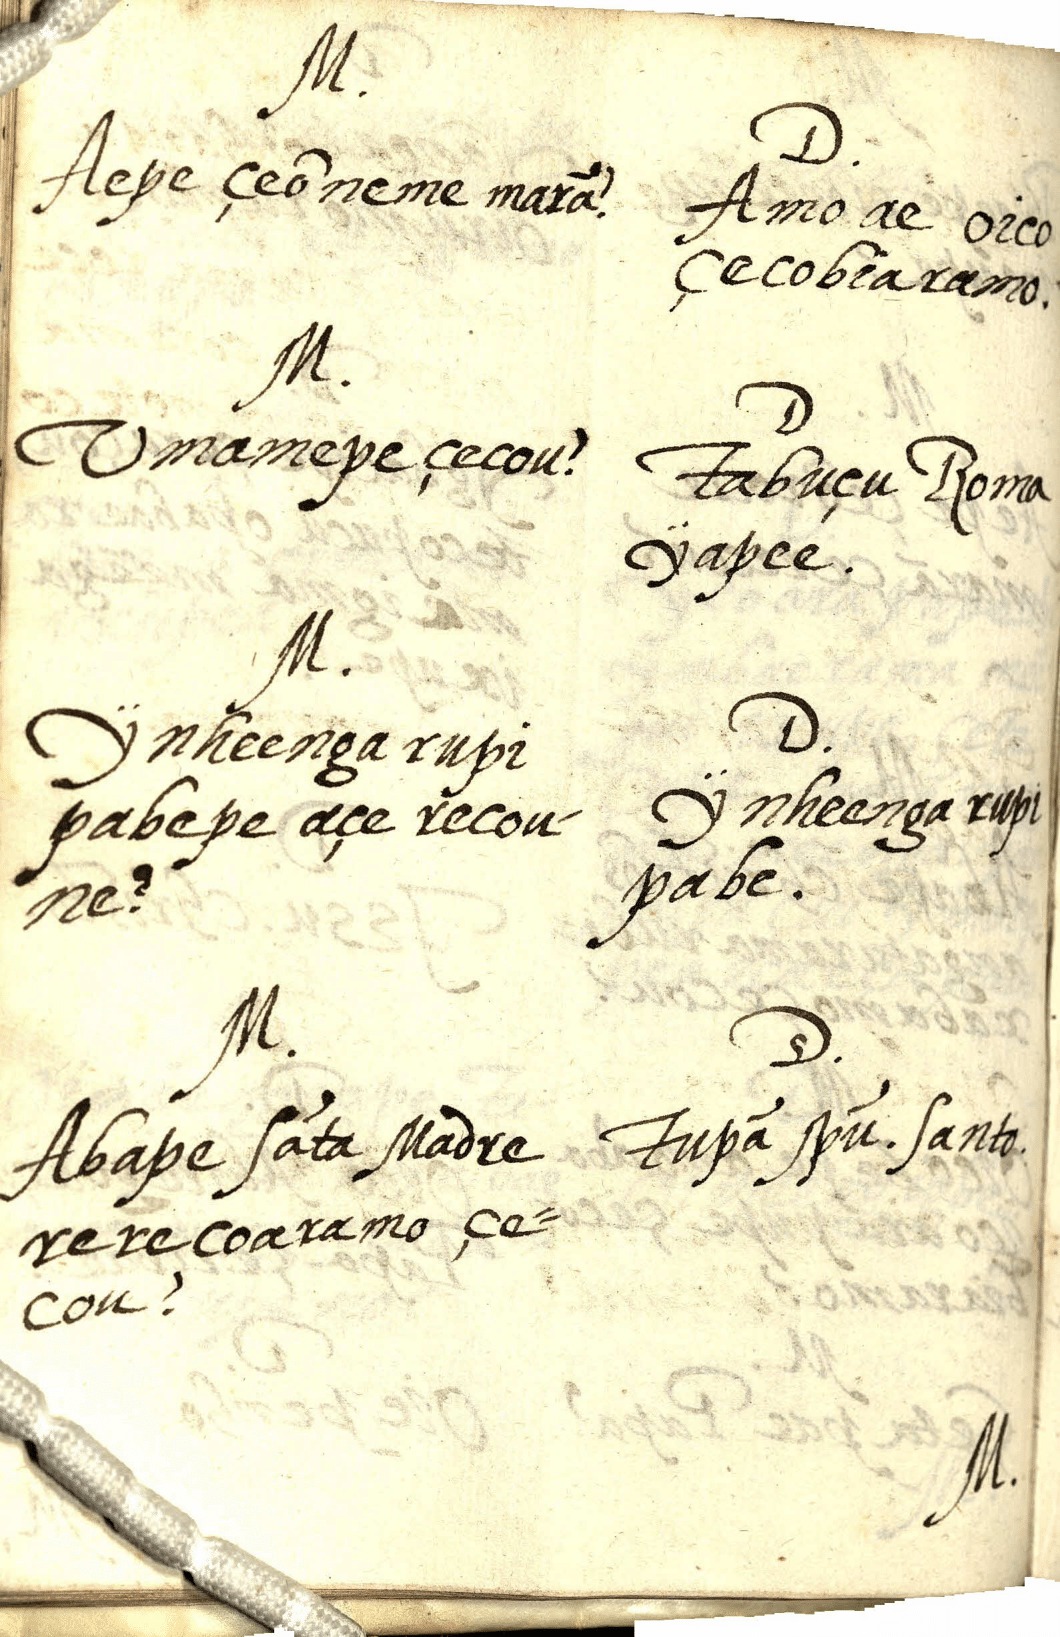 M.
Aepe çeõ neme marã?
D.
Amo ae oico
çecobiaramo.
M.
Umamepe çecou?
D
Tabuçu Roma
ÿapee.
M.
Ÿ nheenga rupi
pabepe açe recou-
ne?
D.
Ÿ nheenga rupi
pabe.
M.
Abape Sãta Madre
rerecoaramo çe=
cou?
D.
Tupã Spũ. Santo.
M.